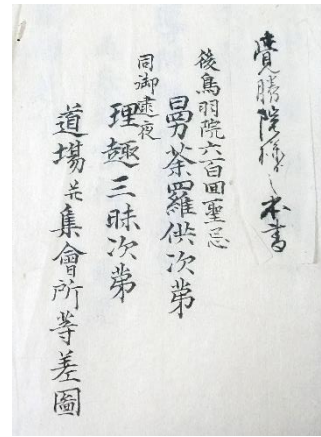 覺勝院様之本書
後鳥羽院六百回聖忌
曼荼羅供次第
同御逮夜
理趣三昧次第
道場并集會所等差圖